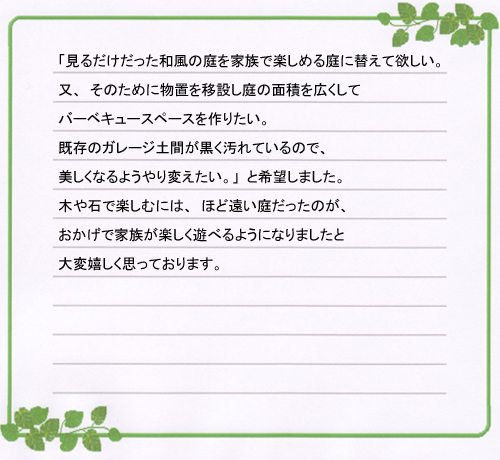 「見るだけだった和風の庭を家族で楽しめる庭に替えて欲しい。
又、そのために物置を移設し庭の面積を広くして
バーベキュースペースを作りたい。
既存のガレージ土間が黒く汚れているので、
美しくなるようやり変えたい。」と希望しました。
木や石で楽しむには、ほど遠い庭だったのが、
おかげで家族が楽しく遊べるようになりましたと
大変嬉しく思っております。